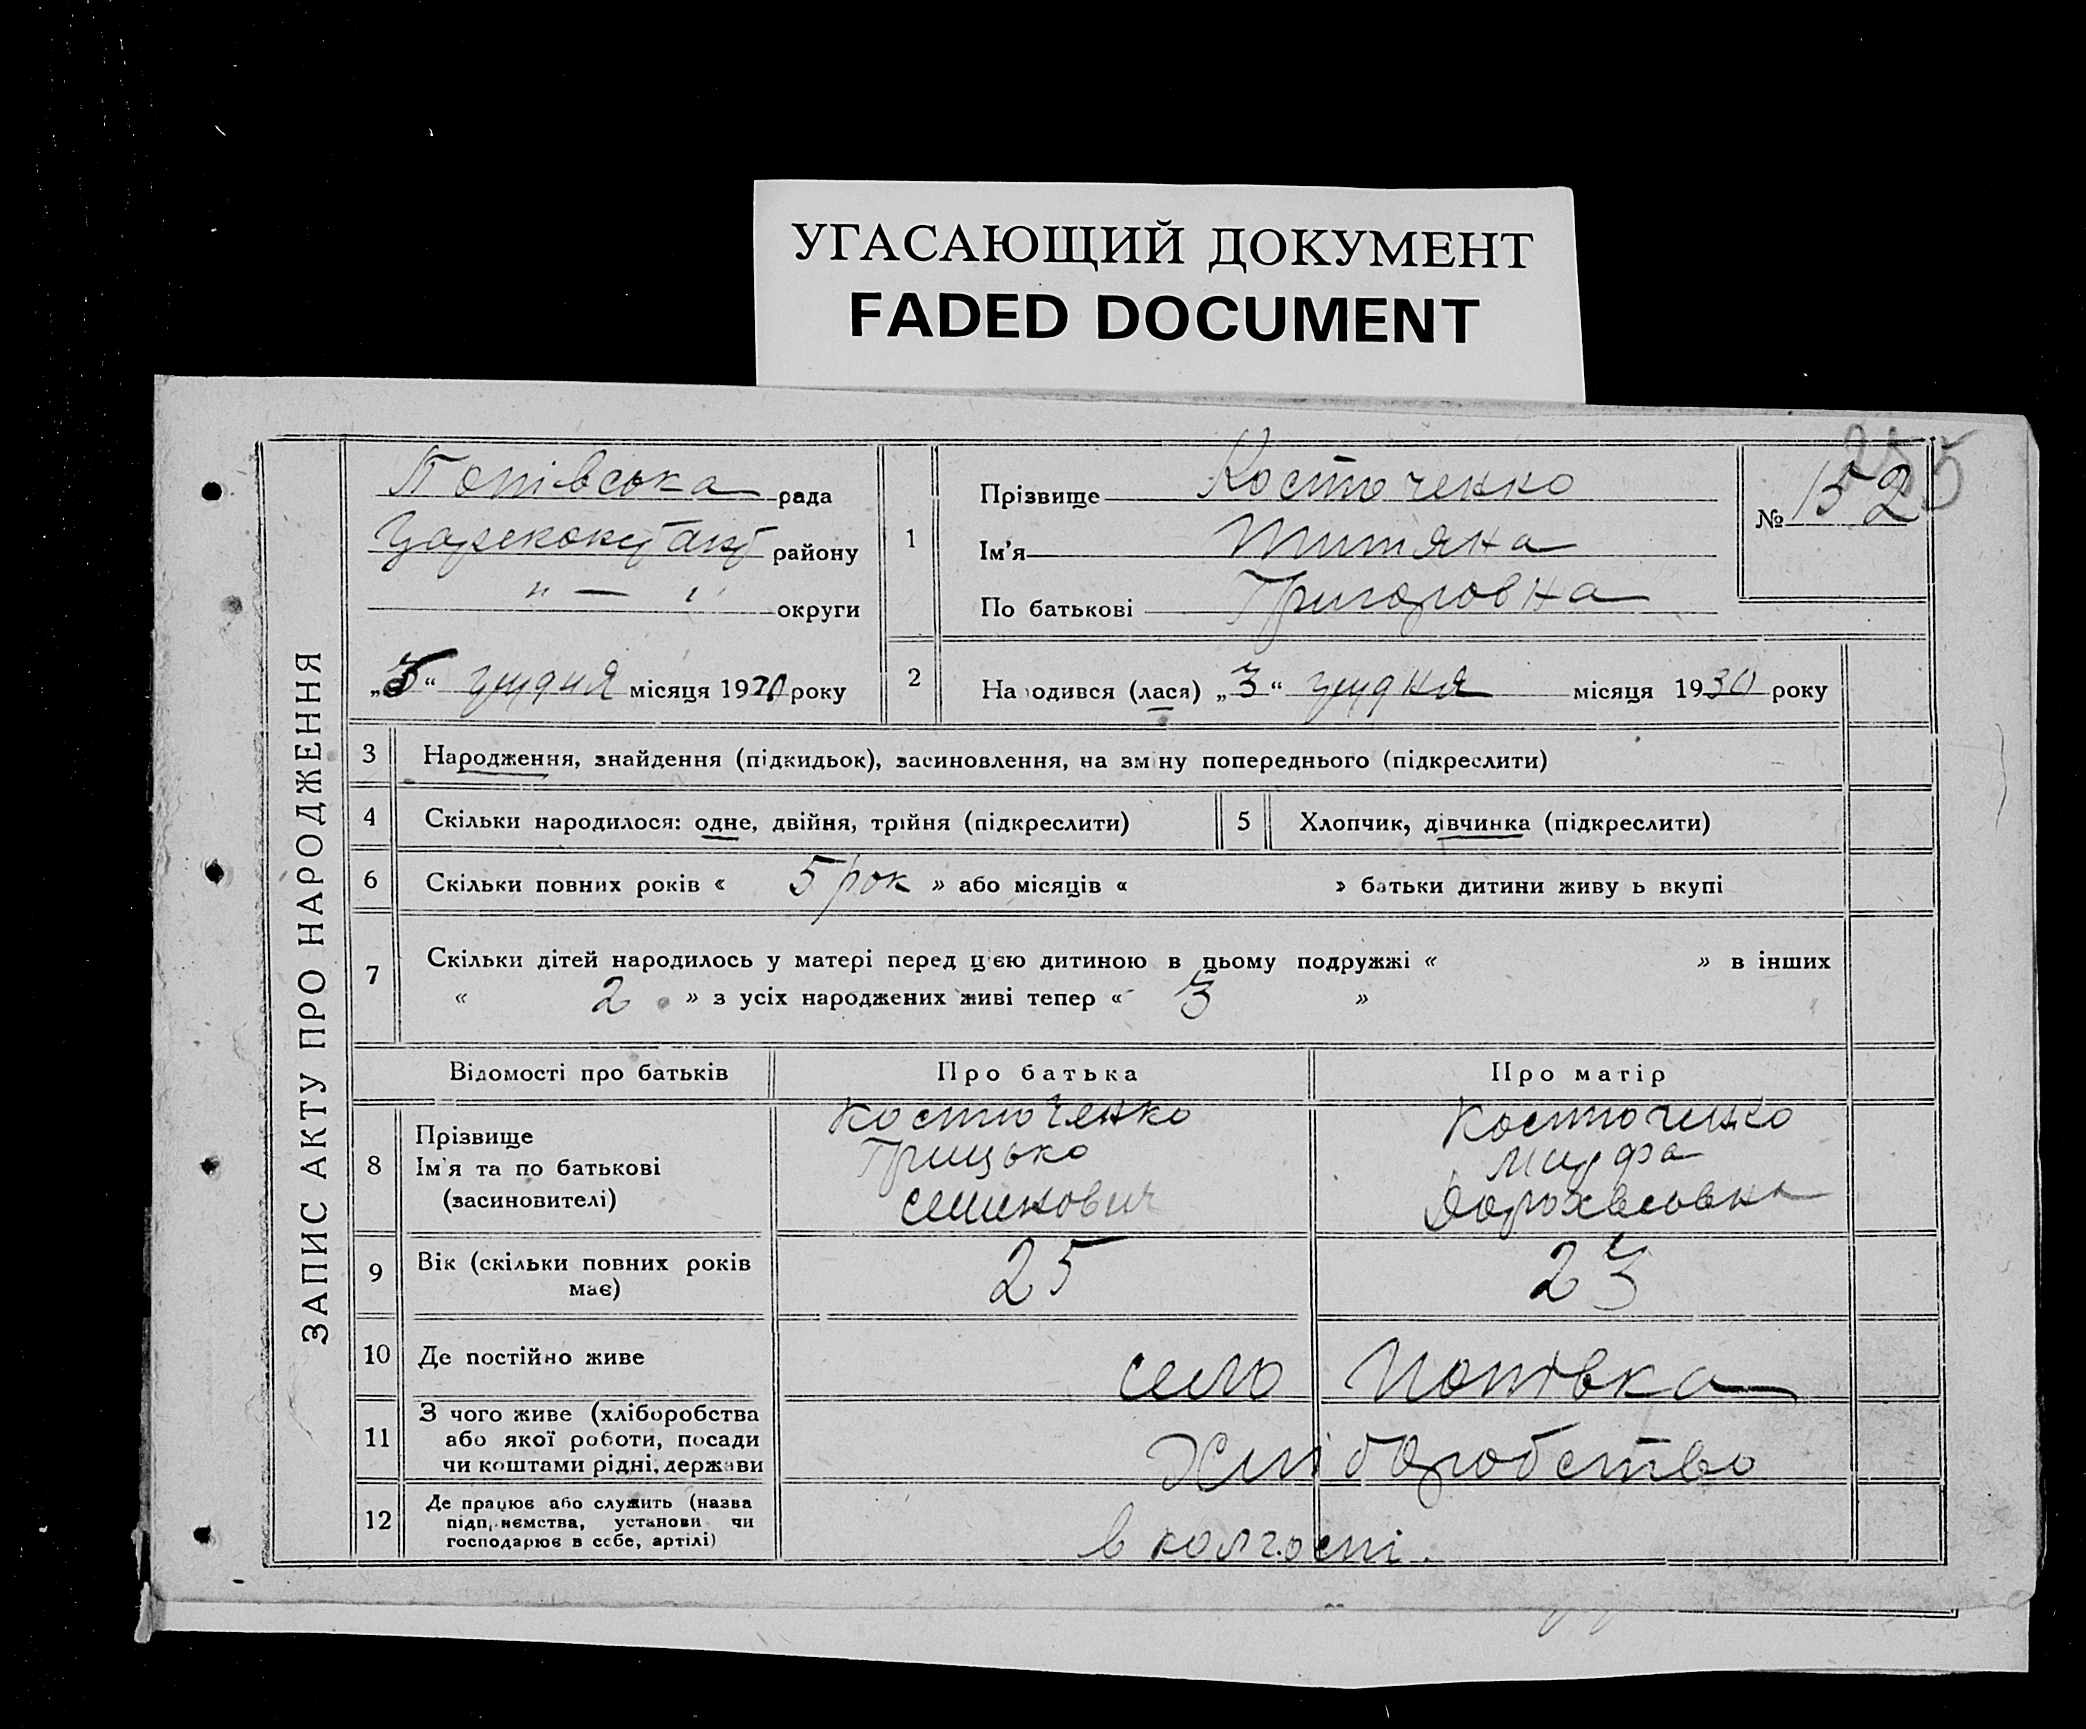 УГАСАЮЩИЙ ДОКУМЕНТ
FADED DOCUMENT
255
ЗАПИС АКТУ ПРО НАРОДЖЕННЯ
Попівська рада
району
" — " округи
„3“ грудня місяця 1930 року
1
Прізвище Костюченко
Ім'я Титяна
По батькові Григоровна
№ 152
2 На одився (лася) „3“ грудня місяця 1930 року
3 Народження, знайдення (підкидьок), засиновлення, на зміну попереднього (підкреслити)
4 Скільки народилося: одне, двійня, трійня (підкреслити)
5 Хлопчик, дівчинка (підкреслити)
6 Скільки повних років « 5 рок » або місяців « » батьки дитини живу ь вкупі
7 Скільки дітей народилось у матері перед цією дитиною в цьому подружжі « » в інших
« 2 » з усіх народжених живі тепер « 3 »
Відомості про батьків Про батька Про матір
8 Прізвище Костюченко Костюченко
Ім'я та по батькові Грицько
(засиновителі) Семенович
9 Вік (скільки повних років має) 25 23
10 Де постійно живе село Попівка
11 З чого живе (хліборобства
або якої роботи, посади
чи коштами рідні, держави Хліборобство
12 Де працює або служить (назва
підпр.ємства, установи чи
господарює в себе, артілі) в колгоспі.